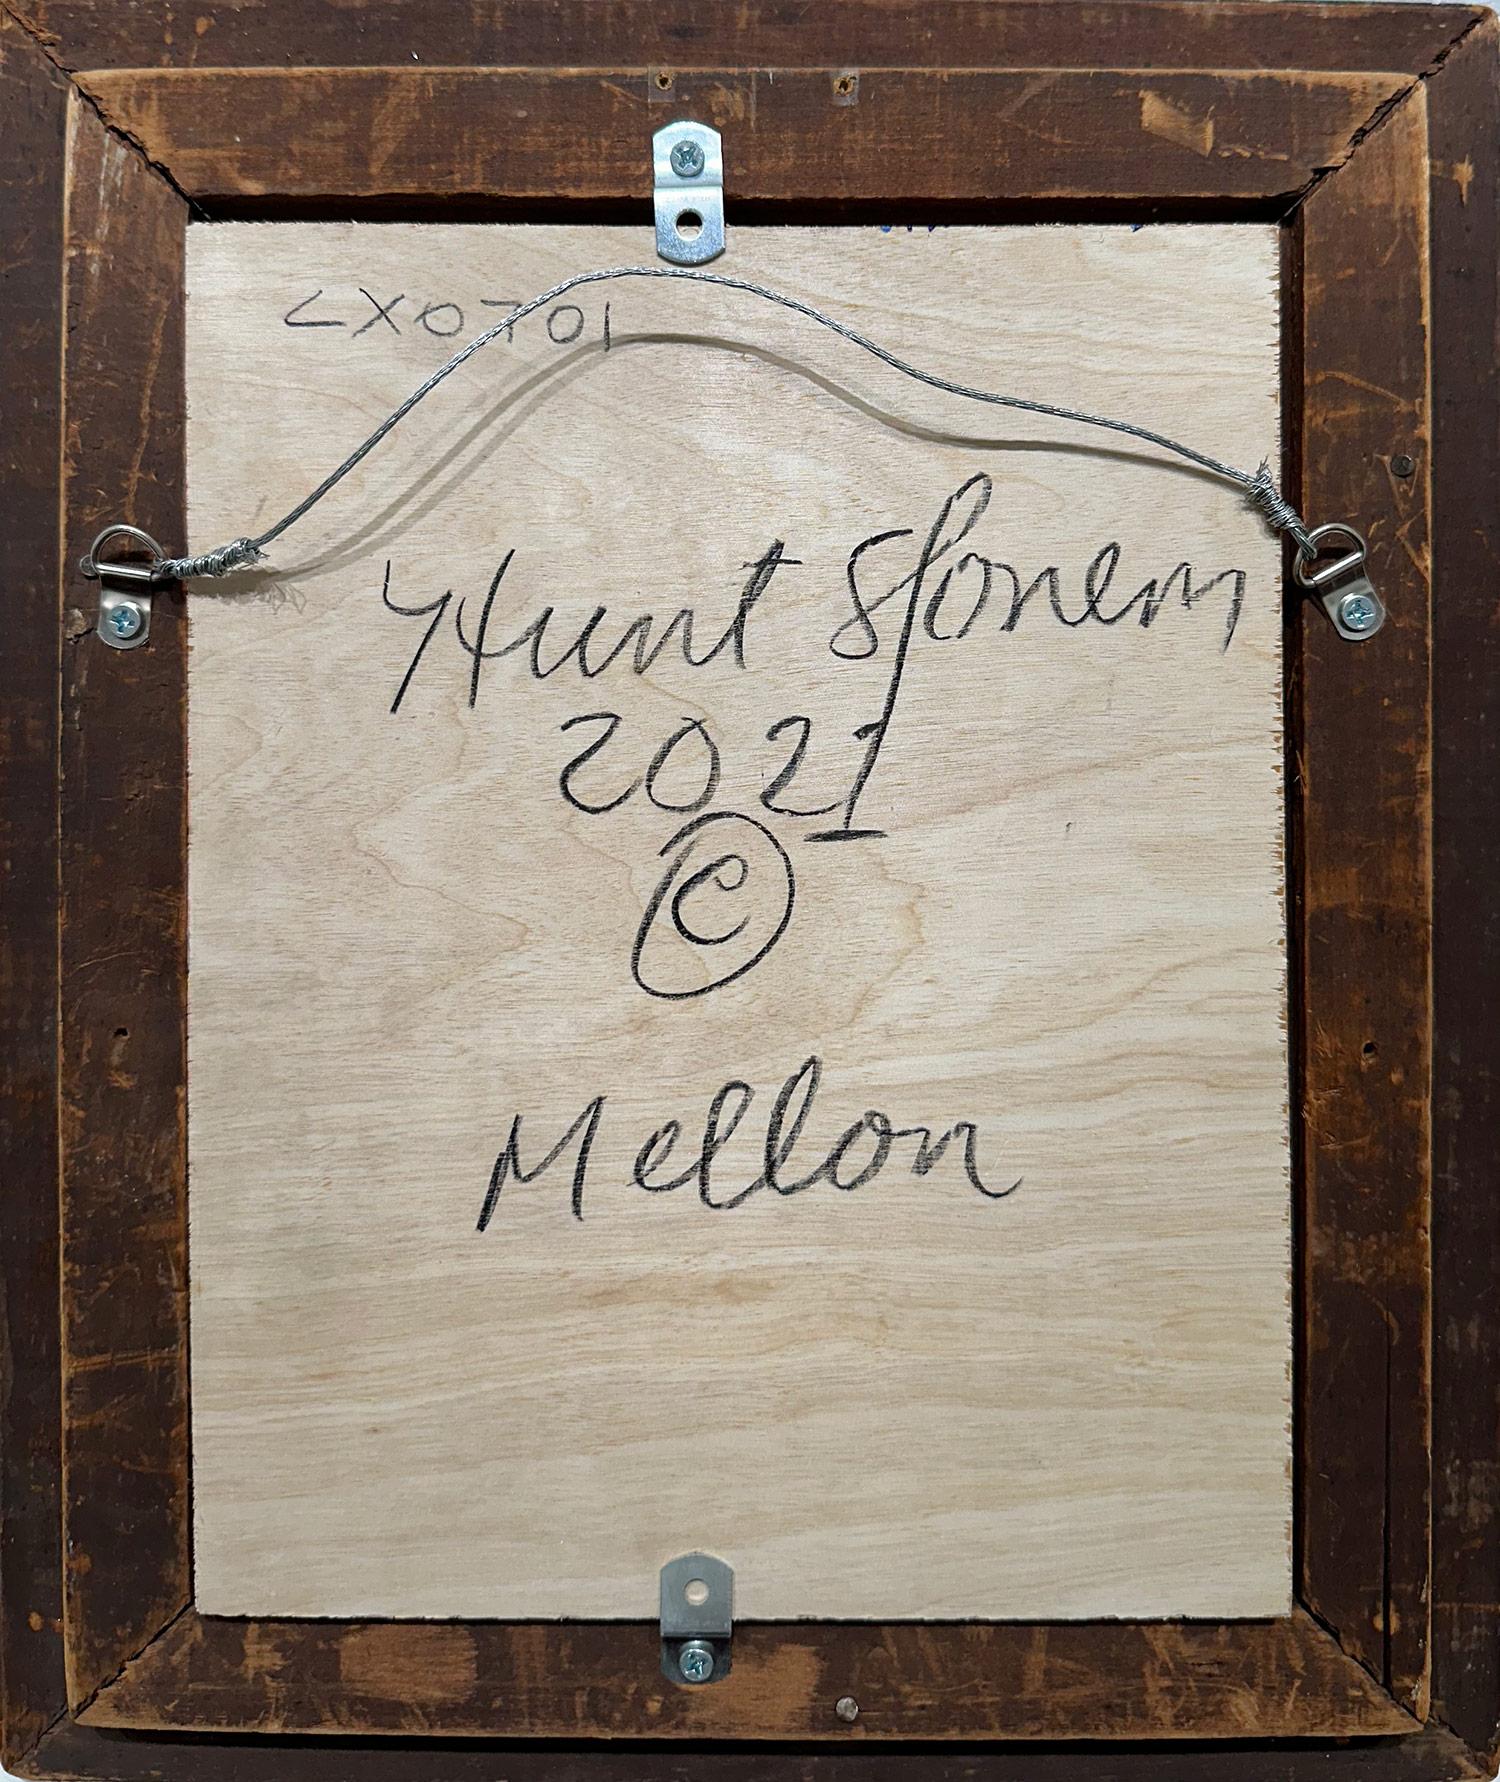 CX0701
Hunt Slonem
2021
©
Mellon